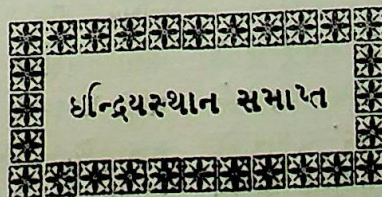 ઇન્દ્રિયસ્થાન સમાપ્ત